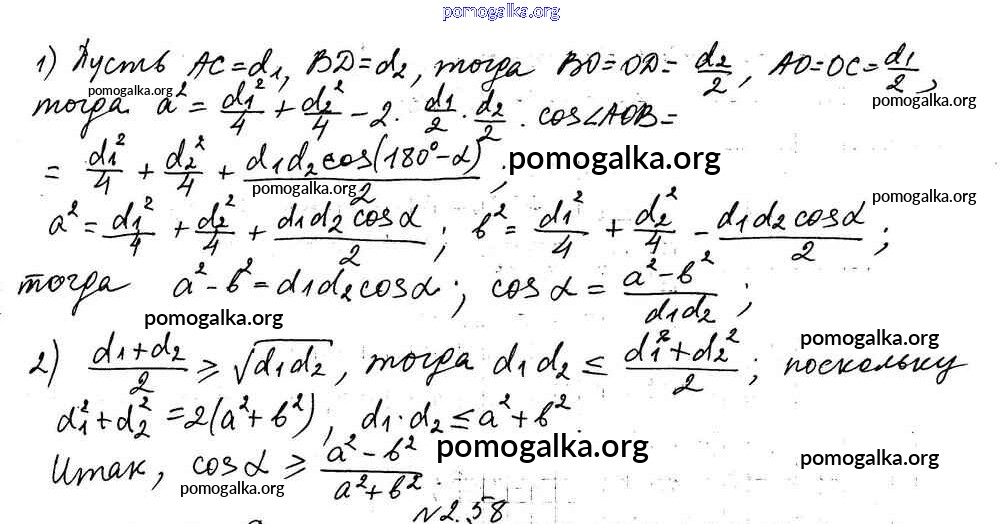 pomogalka.org
1) Пусть AC=d₁, BD=d₂, тогда BO=OD= d₂/2, AO=OC= d₁/2,
pomogalka.org pomogalka.org
тогда a² = d₁²/4 + d₂²/4 - 2 · d₁/2 · d₂/2 · cos∠AOB=
= d₁²/4 + d₂²/4 + d₁d₂cos(180°-α)/2 ;
pomogalka.org
pomogalka.org pomogalka.org
a² = d₁²/4 + d₂²/4 + d₁d₂cosα/2 ; b² = d₁²/4 + d₂²/4 - d₁d₂cosα/2 ;
тогда a²-b² = d₁d₂cosα ; cosα = a²-b²/d₁d₂ ;
pomogalka.org pomogalka.org
2) d₁+d₂/2 ≥ √d₁d₂ , тогда d₁d₂ ≤ d₁²+d₂²/2 ; поскольку
d₁²+d₂² = 2(a²+b²), d₁·d₂ ≤ a²+b².
pomogalka.org pomogalka.org
Итак, cosα ≥ a²-b²/a²+b² .
pomogalka.org pomogalka.org
N2.58